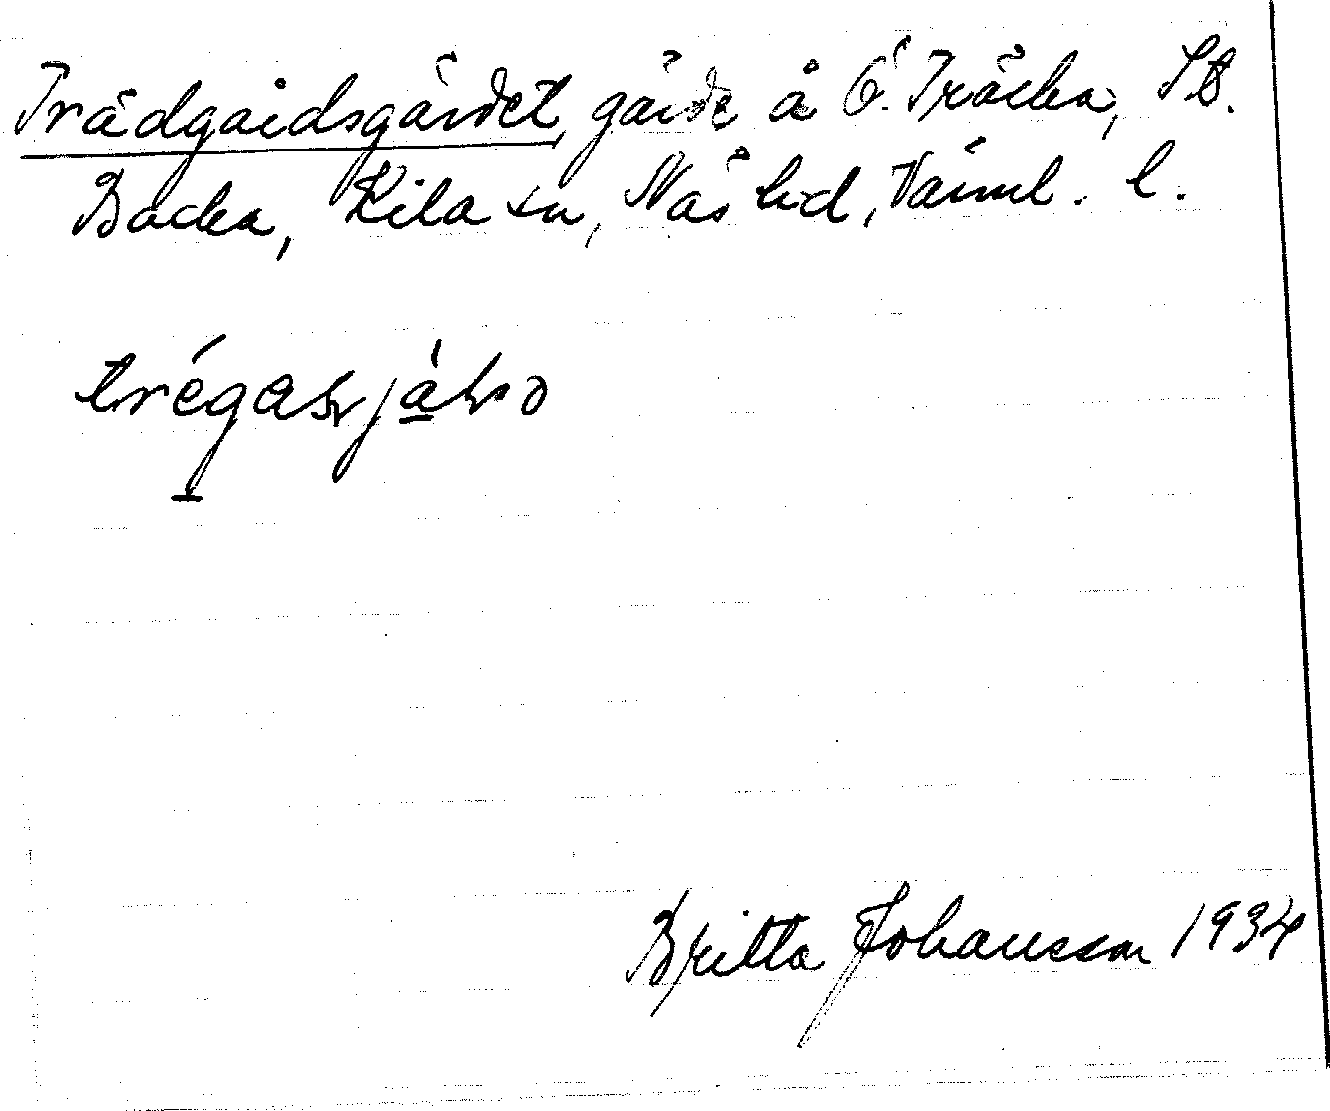 Trädgårdsgärdet, gärde å Ö. Träcka, St.
Backa, Kila sn, Näs hd, Värml. l.
Britta Johansson 1934